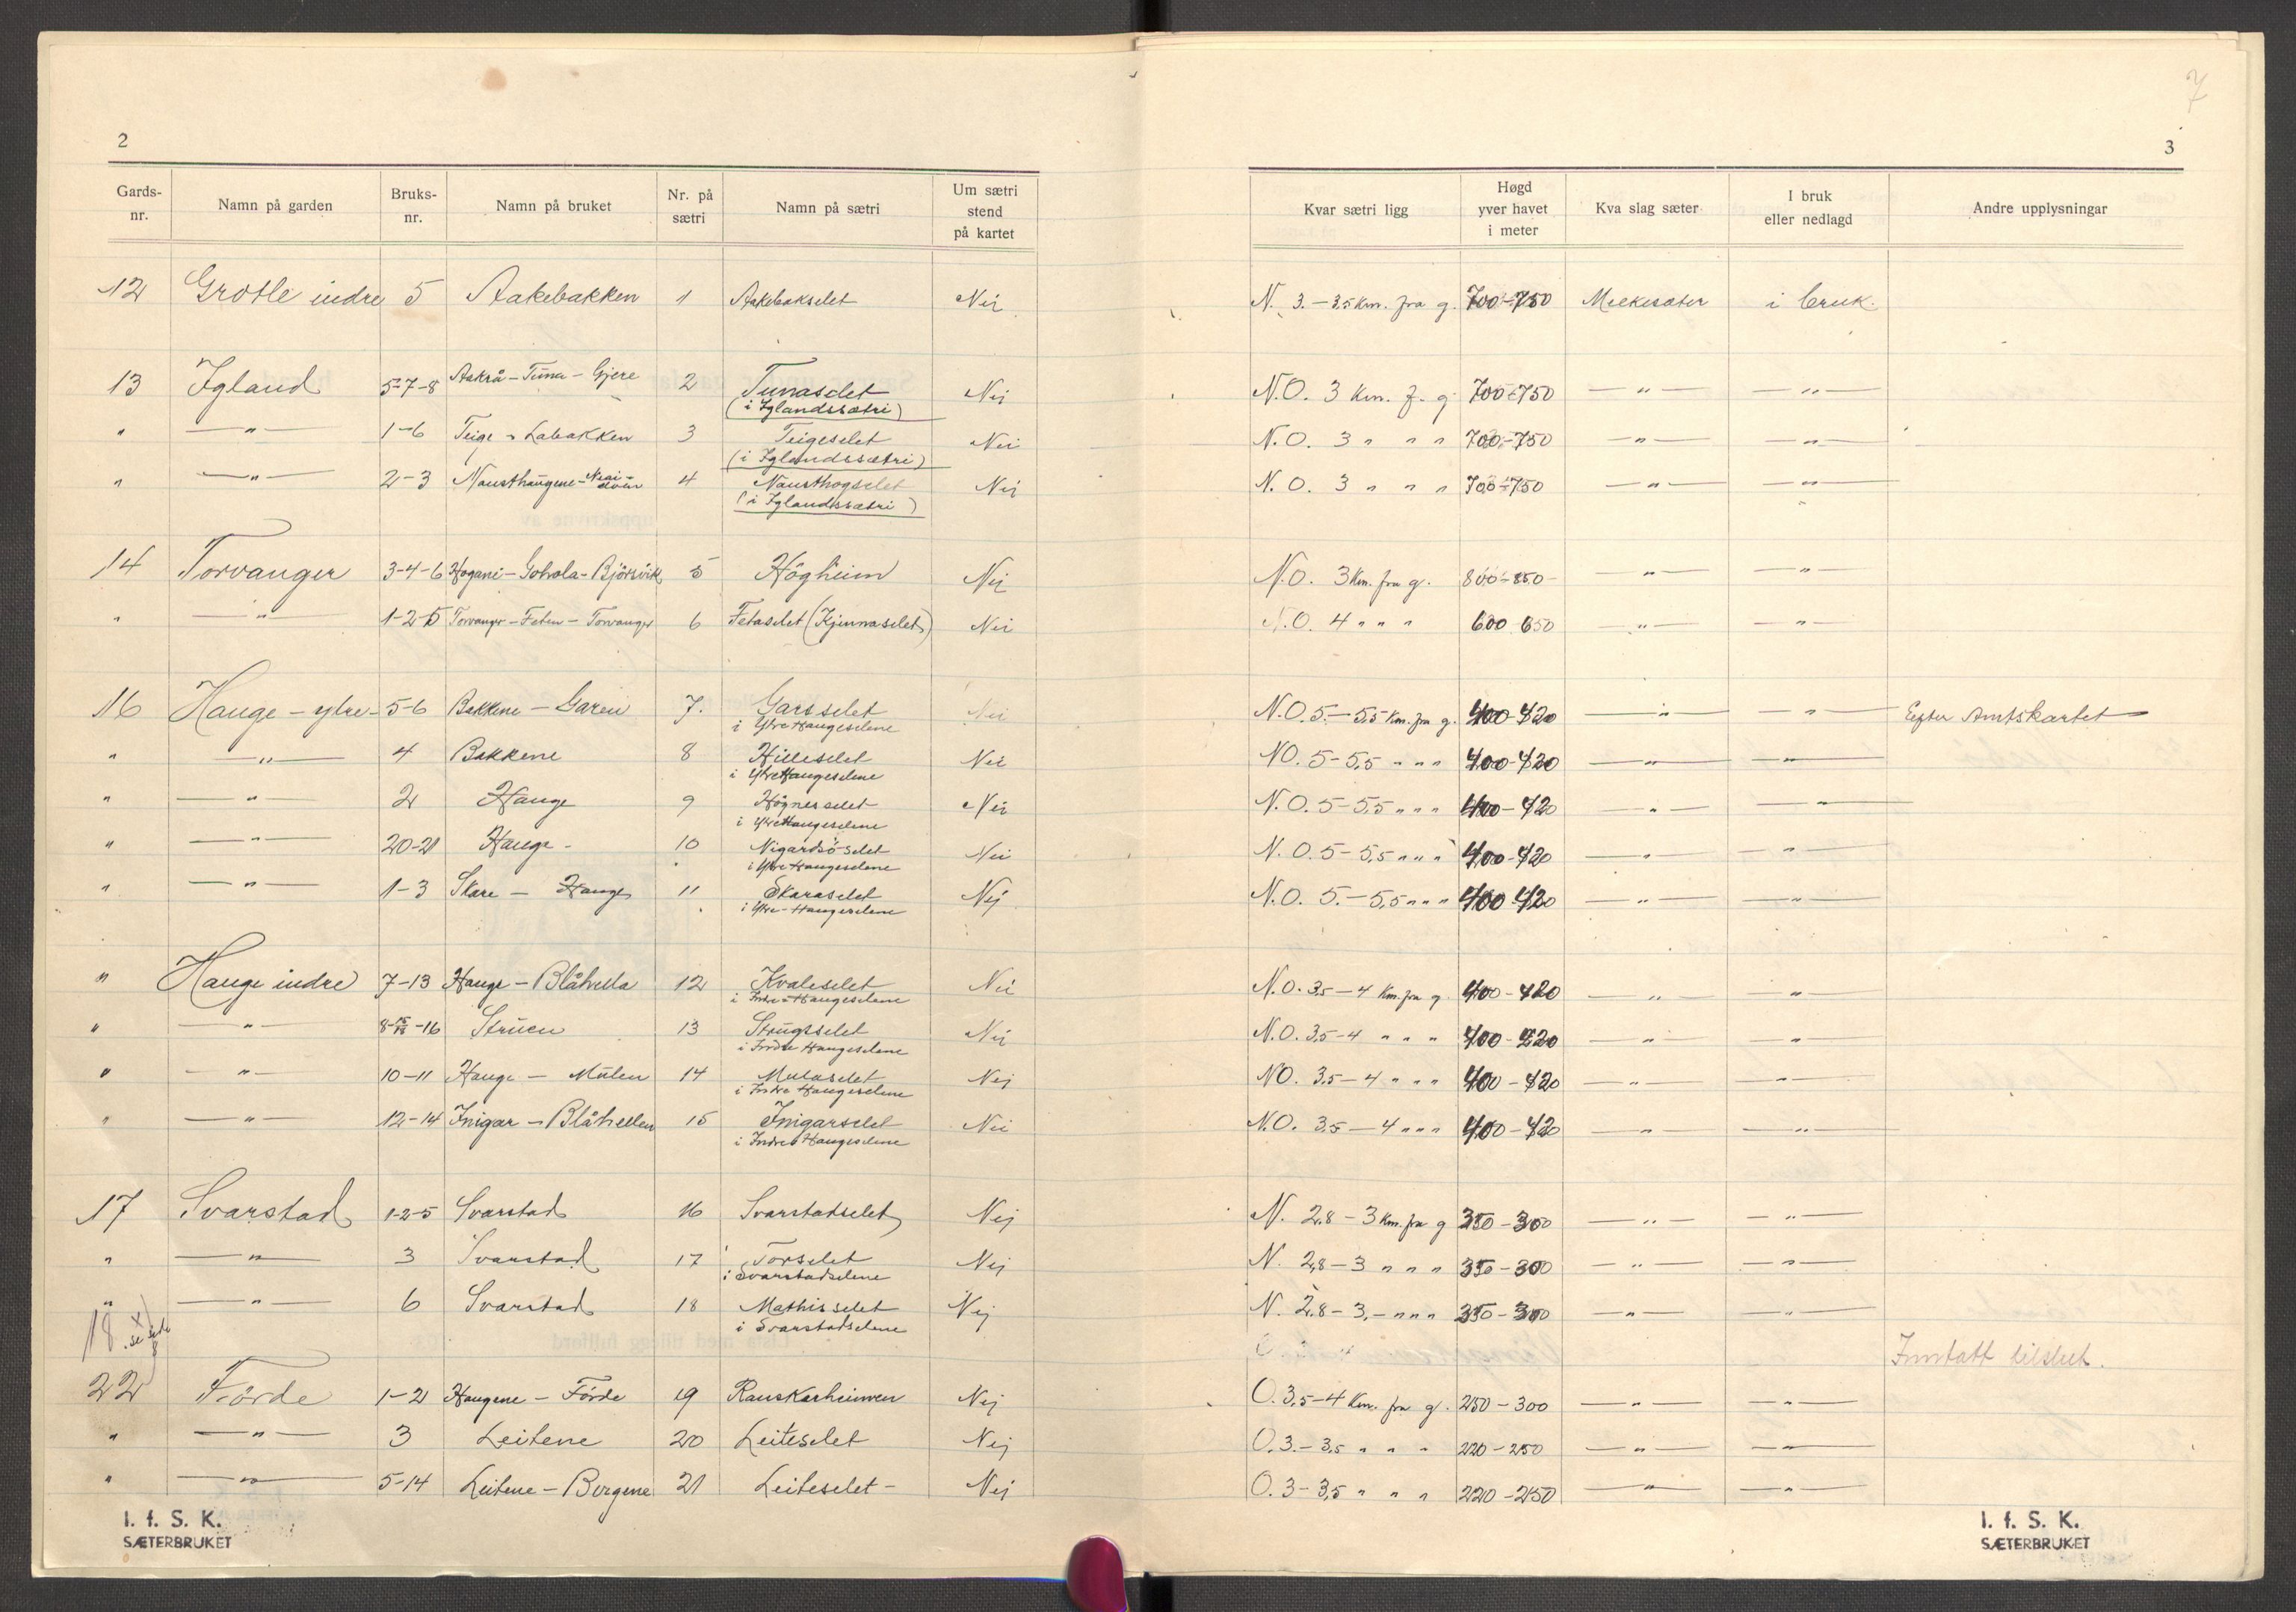 2
Gards-nr. Namn på garden Bruks-nr. Namn på bruket Nr. på sætri Namn på sætri Um sætri stend på kartet
12 Grotle indre 5 Aakebakken 1 Aakebakselet Nei
13 Igland 5-7-8 Aakrå - Tuna - Gjere 2 Tunaselet Nei
(i Iglandssætri)
" —"— 1-6 Teige - Labakken 3 Teigeselet Nei
(i Iglandssætri)
" —"— 2-3 Nausthaugene - 4 Nausthogselet Nei
(i Iglandssætri)
14 Torvanger 3-4-6 Hogane - Gotvola - Björsvik 5 Högheim Nei
" —"— 1-2-5 Torvanger - Feten - Torvanger 6 Fetaselet (Kjinnaselet) Nei
16 Hauge - ytre - 5-6 Bakkene - Garen 7. Garsselet Nei
i Ytre Haugeselene
" —"— 4 Bakkene 8 Hilleselet Nei
i Ytre Haugeselene
" —"— 2 Hauge 9 Högnesselet Nei
i Ytre Haugeselene
" —"— 20-21 Hauge - 10 Nigardsö-selet Nei
i Ytre Haugeselene
" —"— 1-3 Skare - Hauge 11 Skaraselet Nej
i Ytre - Haugeselene
" Hauge indre 7-13 Hauge - Blåhella 12 Kvaleselet Nei
i Indre - Haugeselene
" —"— 8-15/18-16 Struen 13 Strugsselet Nei
i Indre Haugeselene
" —"— 10-11 Hauge - Mulen 14 Mulaselet Nej
i Indre Haugeselene
" —"— 12-14 Inigar - Blåhellen 15 Inigarselet Nei
i Indre Haugeselene
17 Svarstad 1-2-5 Svarstad 16 Svarstadselet Nej
" —"— 3 Svarstad 17 Torselet Nej
i Svarstadselene
" —"— 6 Svarstad 18 Mathisselet Nej
i Svarstadselene
18 x) se side 8
22 Förde 1-2 Haugene - Förde 19 Rauskarheimen Nej
" —"— 3 Leitene 20 Leiteselet Nej
" —"— 5-14 Leitene - Bergene 21 Leiteselet - Nej
I. f. S. K.
SÆTERBRUKET
7
3
Kvar sætri ligg Høgd yver havet i meter Kva slag sæter I bruk eller nedlagd Andre upplysningar
N. 3.-3.5 Km. fra g. 700-750 Melkesæter i bruk.
N.O. 3 Km. f. g. 700-750 —"— —"—
N.O. 3 " " " 700-750 —"— —"—
N.O. 3 " " " 700-750 —"— —"—
N.O. 3 Km. fra g. 800-850 - —"— —"—
N.O. 4 " " " 600 650 —"— —"—
N.O. 5.-5,5 Km. fra g. 400-420 —"— —"— Efter Amtskartet
NO. 5-5,5 " " " 400-420 —"— —"—
N.O. 5-5,5 " " " 400-420 —"— —"—
N.O. 5-5,5 " " " 400-420 —"— —"—
N.O. 5.-5,5 " " " 400-420 —"— —"—
N.O. 3,5-4 Km. fra g. 400-420 —"— —"—
N.O. 3,5-4 " " " 400-420 —"— —"—
NO. 3,5-4 " " " 400-420 —"— —"—
N.O. 3,5-4 " " " 400-420 —"— —"—
N. 2,8-3 Km. fra g 350-300 —"— —"—
N. 2,8-3 " " " 350-300 —"— —"—
N. 2,8-3,- " " " 350-300 —"— —"—
O. 3,5-4 Km. fra g. 250-300 —"— —"—
O. 3.-3,5 " " " 220-250 —"— —"—
O. 3-3,5 " " " 220-250 —"— —"—
I. f. S. K.
SÆTERBRUKET